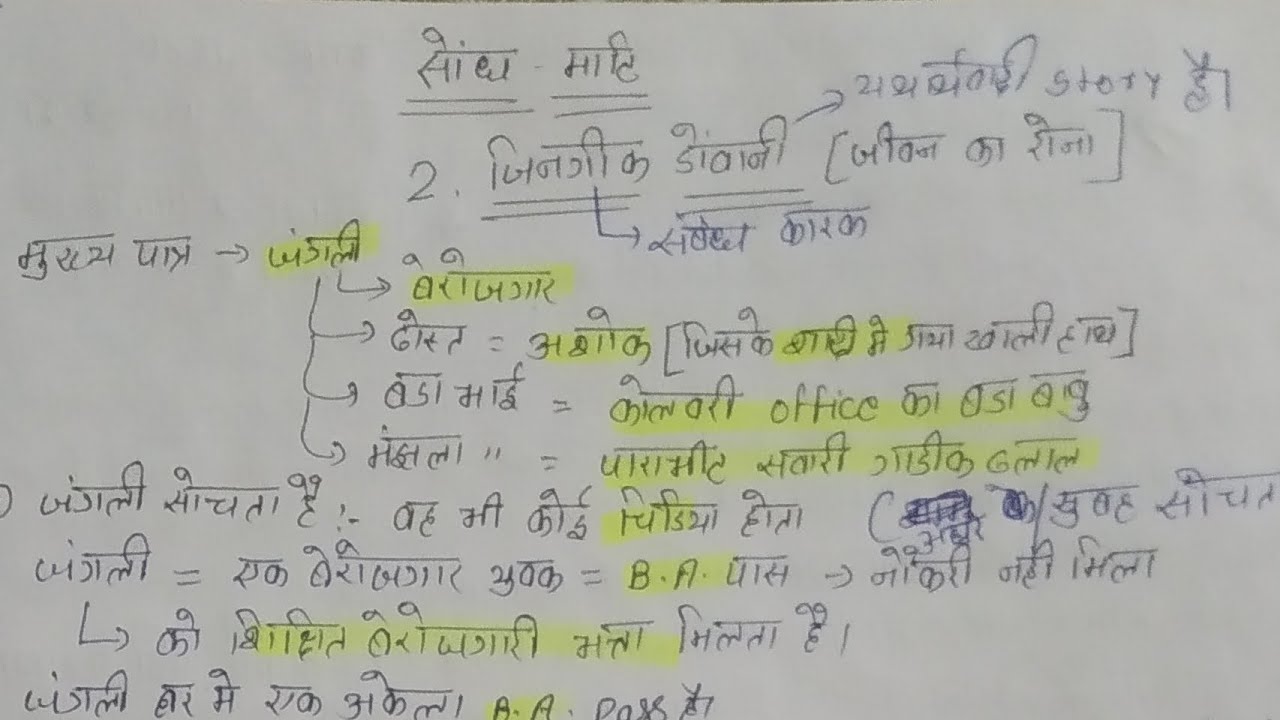 सोंध - माटि
→ यथार्थवादी story है।
2. जिनगीक डोंवानी [जीवन का रोना]
↳ संबंध कारक
मुख्य पात्र → जंगली
↳ बेरोजगार
→ दोस्त = अशोक [जिसके शादी मे गया खाली हाथ]
→ बडा भाई = कोलवरी office का बडा बाबु
→ मंझला " = पाराभीट सवारी गाडीक दलाल
जंगली सोचता है :- वह भी कोई चिडिया होता ( / सुबह सोचत
जंगली = एक बेरोजगार युवक = B.A. पास → नौकरी नही मिला
↳ को शिक्षित बेरोजगारी भत्ता मिलता है।
जंगली घर मे एक अकेला B.A. pass है।